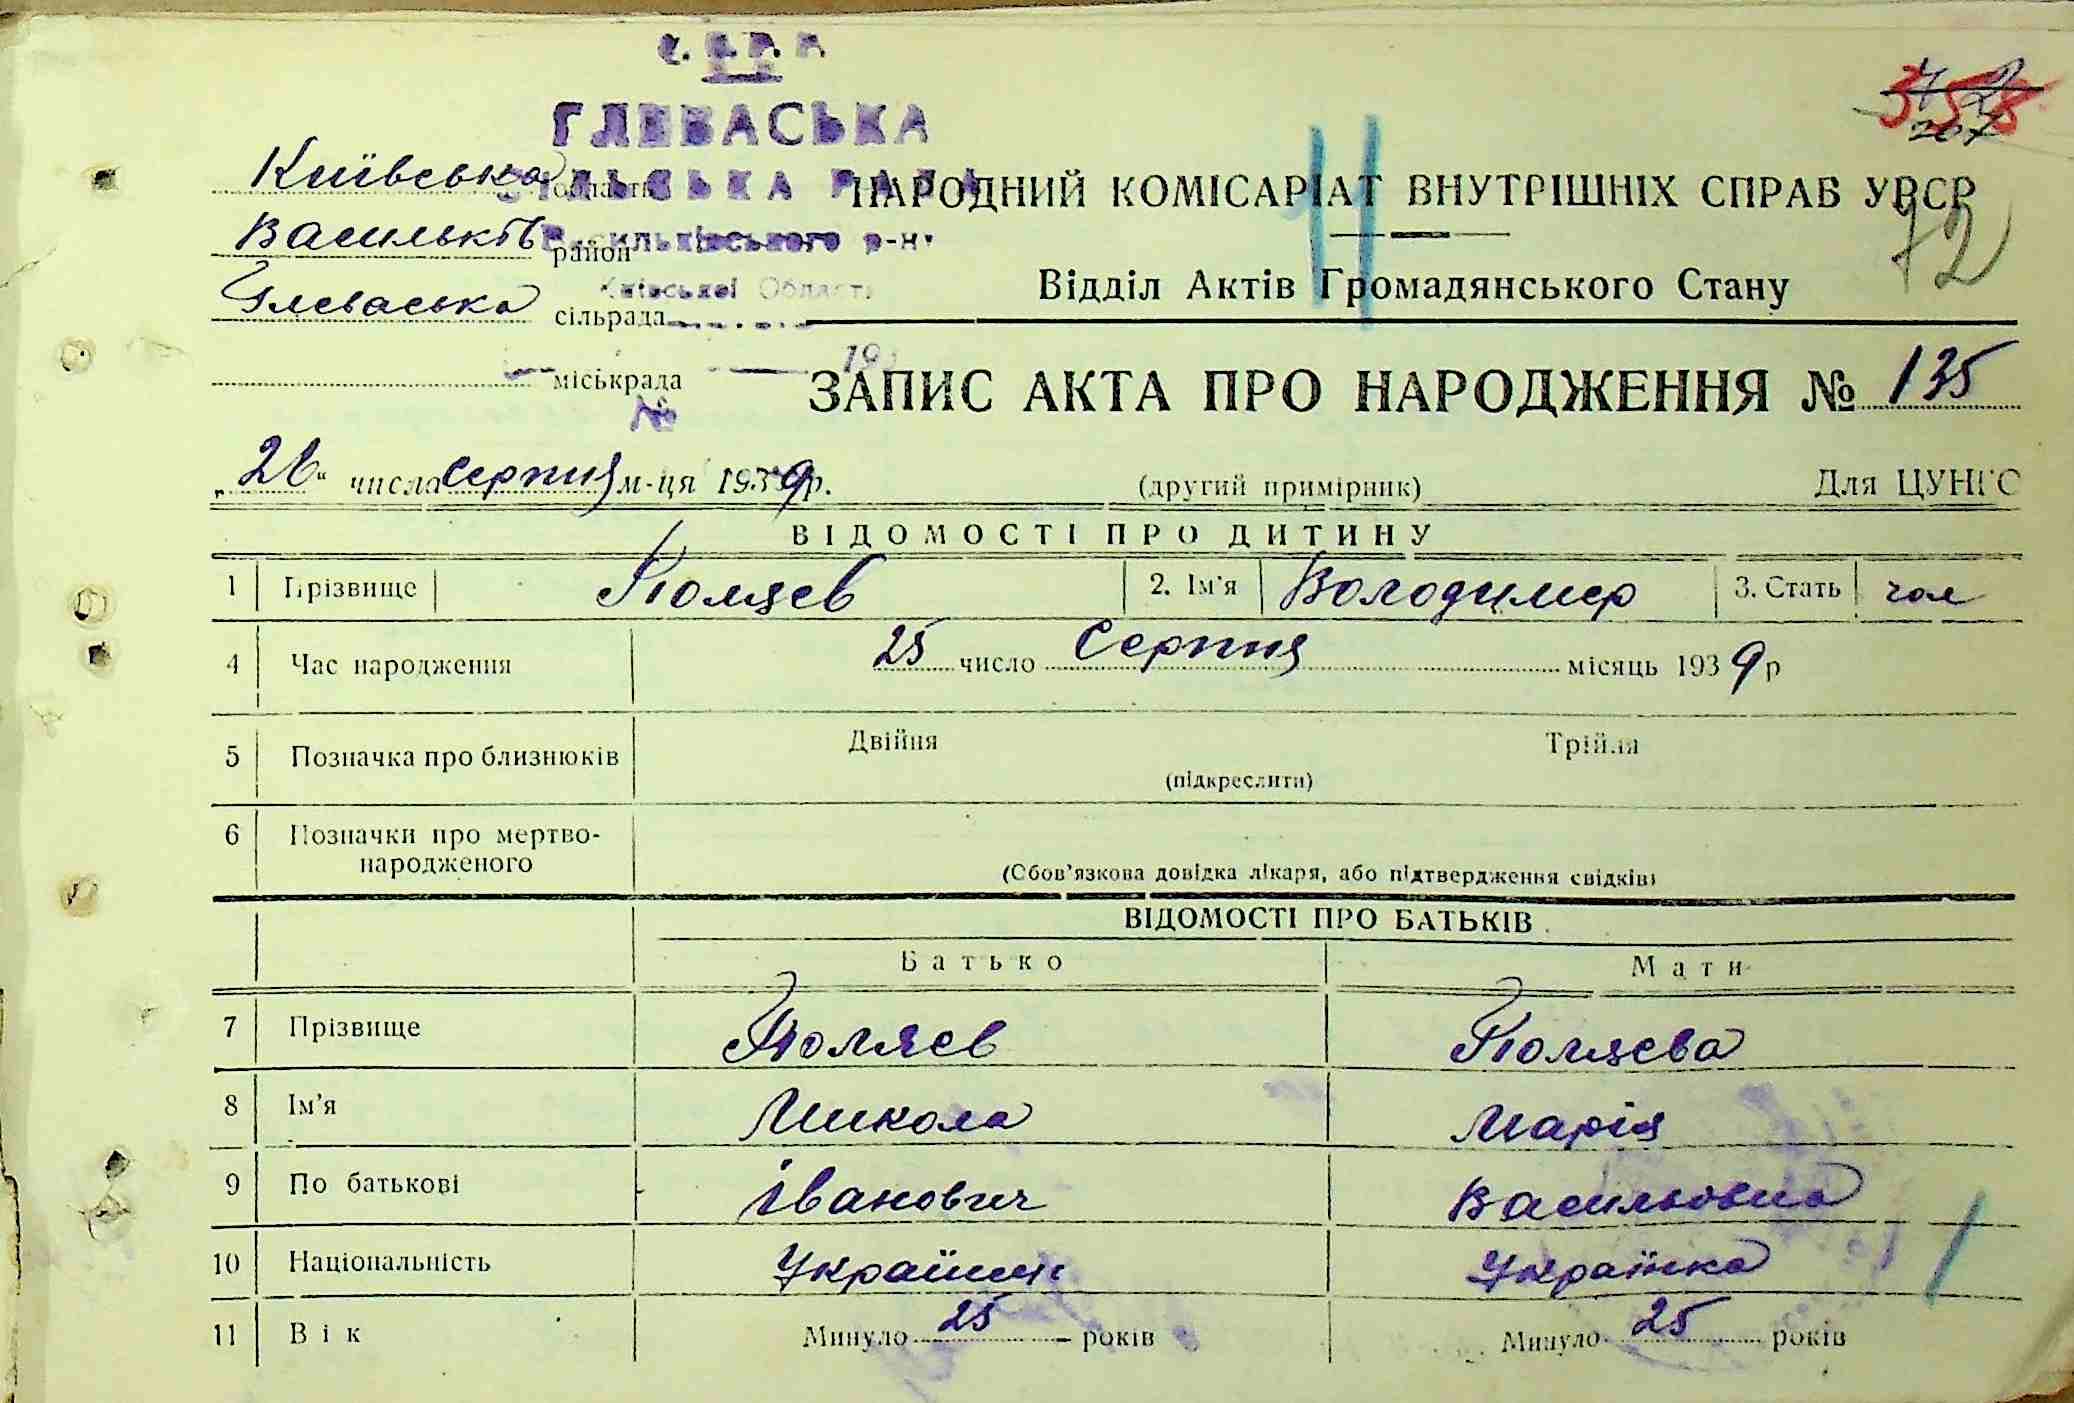 ГЛЕВАСЬКА
Київська область СІЛЬСЬКА РАДА НАРОДНИЙ КОМІСАРІАТ ВНУТРІШНІХ СПРАВ УРСР
Васильків район Васильківського р-н 72
Глеваська сільрада Київської Області Відділ Актів Громадянського Стану
міськрада 19 ЗАПИС АКТА ПРО НАРОДЖЕННЯ № 135
№
„26“ числа серпня м-ця 1939р. (другий примірник) Для ЦУНГО
ВІДОМОСТІ ПРО ДИТИНУ
1 Прізвище Поляєв 2. Ім'я Володимер 3. Стать чол
4 Час народження 25 число Серпня місяць 1939р
5 Позначка про близнюків Двійня Трійля
(підкреслити)
6 Позначки про мертво-
народженого
(Обов'язкова довідка лікаря, або підтвердження свідків)
ВІДОМОСТІ ПРО БАТЬКІВ
Батько Мати
7 Прізвище Поляєв Поляєва
8 Ім'я Микола Марія
9 По батькові Іванович Васильовна
10 Національність Українец Українка
11 Вік Минуло 25 років Минуло 25 років